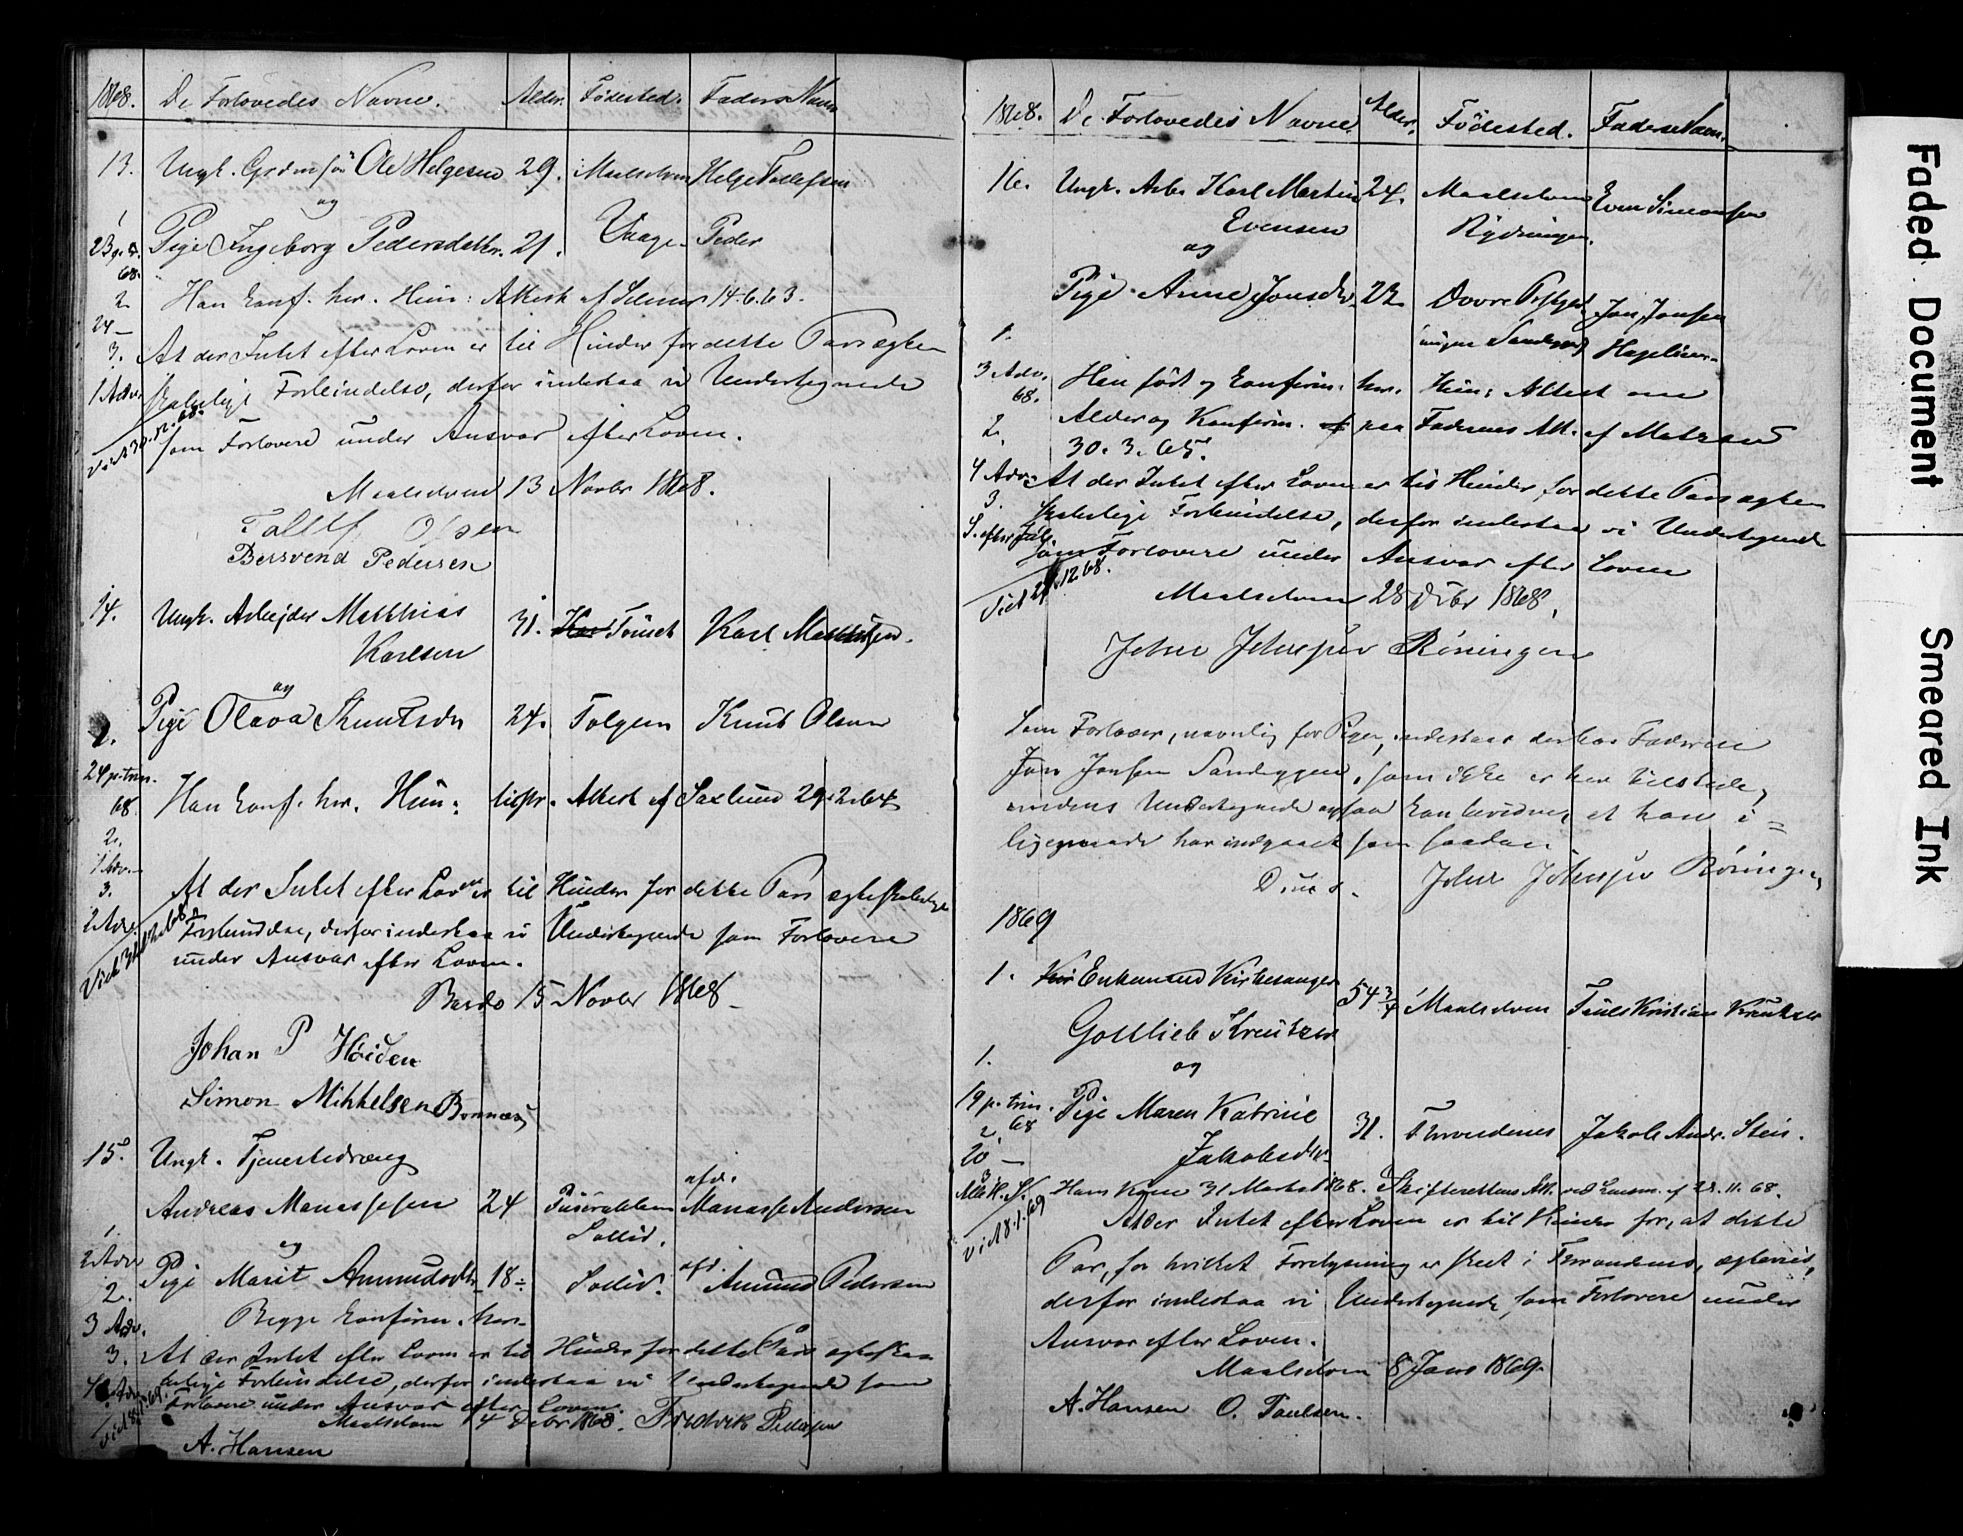 1868. De Forlovedes Navne. Alder. Födested. Faders Navn
13. Ungk. Ole Helgesen 29. Maalselven Helge Tollefsen
og
Pige Ingeborg Pedersdatter. 21. Vaage. Peder
68.
2. Han konf. her. Hun: Attest af 14.6.63.
24 –
3. At der Intet efter Loven er til Hinder for dette Pars ægte
1 Adv. skabelige Forbindelse, derfor indestaa vi Undertegnede
som Forlovere under Ansvar efter Loven.
Viet 30.12.68.
Maalselven 13 Novbr 1868.
Tollef Olsen
Bersvend Pedersen
14. Ungk. Arbejder Matthias 31. Karl
Karlsen
og
Pige Olava Knutsdr 24. Tolgen Knut Olsen
1.
24 p. trin.
68 Han konf. her. Hun: Attest af Saxlund 29.2.64
2.
1 Adv.
3. At der Intet efter Loven er til Hinder for dette Pars ægteskabelige
2 Adv. Forbindelse, derfor indestaa vi Undertegnede som Forlovere
under Ansvar efter Loven.
Bardo 15 Novbr 1868
Johan P Höiden
Simon Mikkelsen
15. Ungk. Tjenestedreng
afd.
Andreas Manassesen 24 Manasse Andersen
1. Sollid.
2 Adv. og
afd.
Pige Marit Amundsdtr 18 Sollid. Amund Pedersen
2.
3 Adv. Begge konfirm. her.
3. At der Intet efter Loven er til Hinder for dette Pars ægteska
belige Forbindelse, derfor indestaa vi Undertegnede som
Forlovere under Ansvar efter Loven.
Maalselven 4 Debr 1868. Fredrik Pedersen
A. Hansen
1868. De Forlovedes Navne. Alder. Födested. Faders Navn.
16. Ungk. Arb. Karl Martin 24. Maalselven Even Simonsen
Evensen
og
Pige Anne Jonsdr 22 Dovre Jon Jonsen
1.
3 Adv. Han født og konfirm. her. Hun: Attest om
68.
Alder og Konfirm. paa Faderens Att. af
2.
30.3.65.
4 Adv. At der Intet efter Loven er til Hinder for dette Pars ægte
3. skabelige Forbindelse, derfor indestaa vi Undertegnede
S. efter Jul. som Forlovere under Ansvar efter Loven
Maalselven 28 Dcbr 1868.
John Johnsen Röningen
Som Forlover, navnlig for Pigen, indestaar derhos Faderen
Jon Jonsen Sandeggen, som ikke er her tilstede,
medens Undertegnede ogsaa kan bevidne, at han i
ligemaade har indgaaet som saadan.
D. u. s. John Johnsen Röningen
1869
1. Enkemand Kirkesanger
54 3/4 Maalselven
Gottlieb Kreutzer
1. og
19 p. trin.
68 Pige Maren Katrine
2. 31. Throndenes Jakob Andr. Stein.
20 – Jakobsdtr
3
Viet 8.1.69
Hans Kone 31 Marts 1868. Skifterettens Att. ved Lensm. af 28.11.68.
At der Intet efter Loven er til Hinder for, at dette
Par, for hvilket Forelysning er skeet i Throndenes, ægtevies,
derfor indestaa vi Undertegnede som Forlovere under
Ansvar efter Loven.
Maalselven 8 Janr 1869.
A. Hansen O. Paulsen.
Faded Document
Smeared Ink